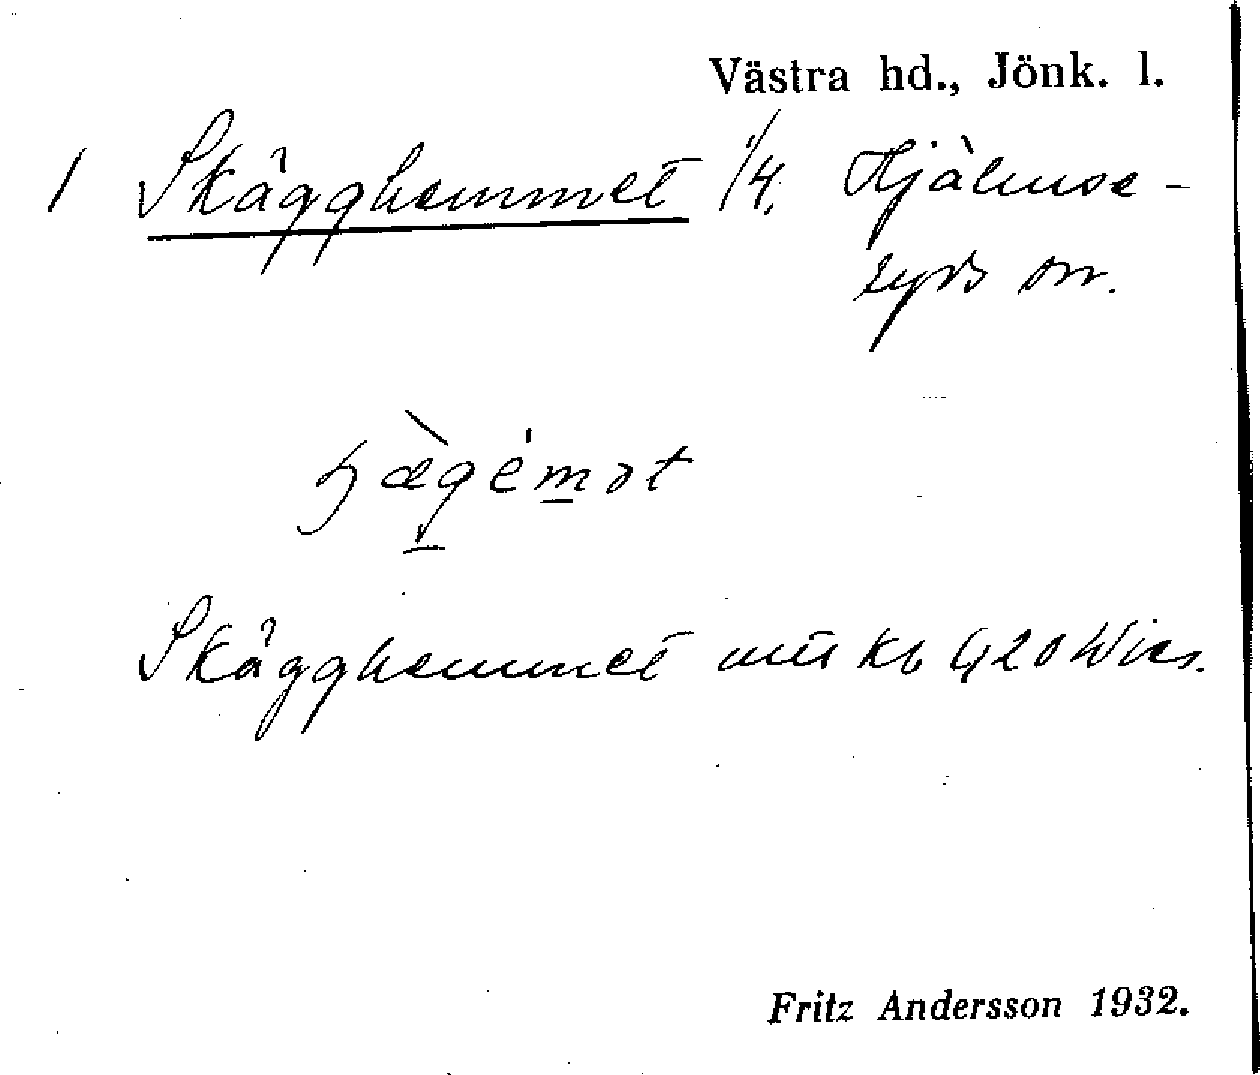 Västra hd., Jönk. l.
1 Skägghemmet 1/4. Hjälmse-
ryds sn.
ɧæ̀gémət
Skägghemmet mtl kb 420 Wies.
Fritz Andersson 1932.